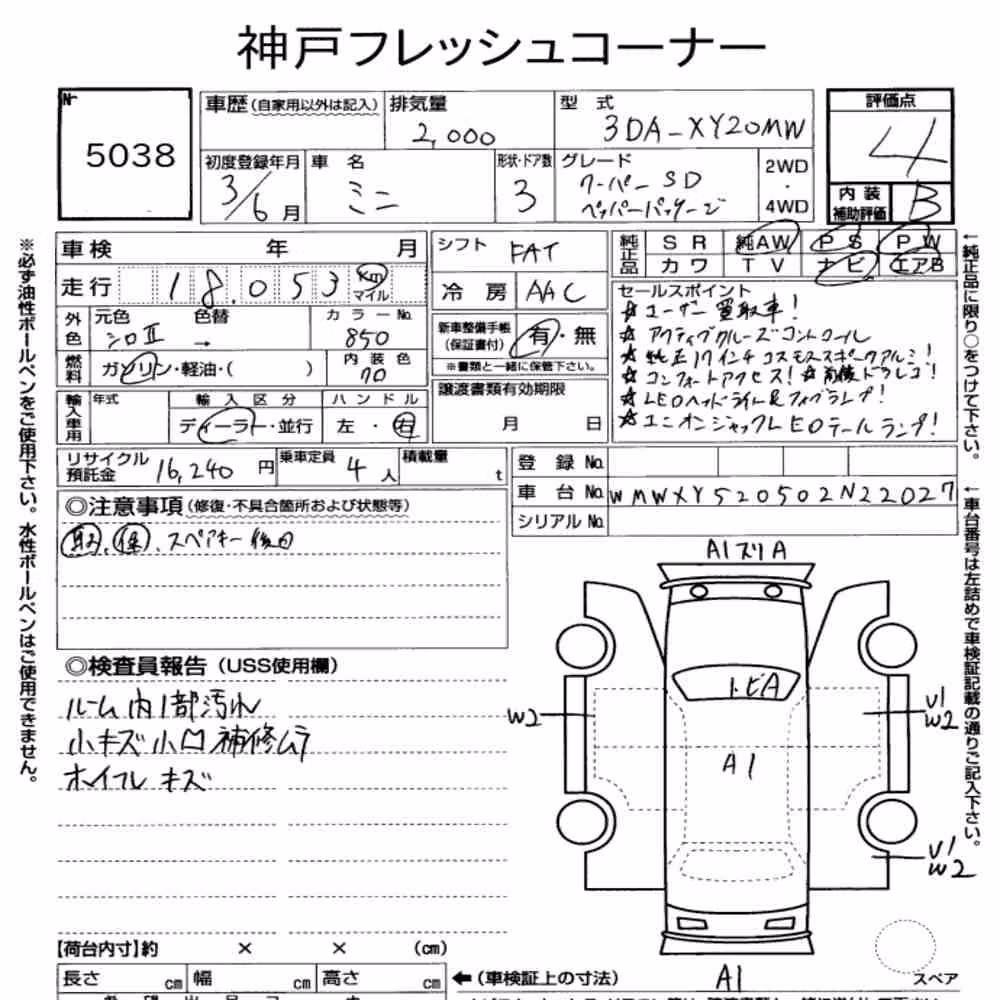 神戸フレッシュコーナー
№ 5038
車歴(自家用以外は記入)
排気量 2,000
型式 3DA-XY20MW
評価点 4
初度登録年月 3/6月
車名 ミニ
形状・ドア数 3
グレード クーパーSD
ペッパーパッケージ
2WD
・
4WD
内装
補助評価 B
車検 年 月
シフト FAT
純正品 SR 純AW PS PW
カワ TV ナビ エアB
走行 18.053 Km
マイル
冷房 AAC
外色 元色 シロⅡ 色替 → カラーNo. 850
新車整備手帳
(保証書付) 有・無
※書類と一緒に保管下さい。
燃料 ガソリン・軽油・( ) 内装色 70
譲渡書類有効期限
月 日
輸入車用 年式 輸入区分 ハンドル
ディーラー・並行 左・右
セールスポイント
☆ユーザー買取車!
☆アクティブクルーズコントロール
☆純正17インチコスモススポークアルミ!
☆コンフォートアクセス!☆前後ドラレコ!
☆LEDヘッドライト&フォグランプ!
☆ユニオンジャックLEDテールランプ!
リサイクル
預託金 16,240円
乗車定員 4人
積載量 t
登録No.
車台No. WMWXY520502N22027
シリアルNo.
◎注意事項(修復・不具合箇所および状態等)
取、保、スペアキー後日
◎検査員報告(USS使用欄)
ルーム内1部汚れ
小キズ小凹補修ムラ
ホイールキズ
A1ズリA
トビA
W2
U1
W2
A1
U1
W2
A1
スペア
【荷台内寸】約 × × (cm)
長さ cm 幅 cm 高さ cm
←(車検証上の寸法)
※必ず油性ボールペンをご使用下さい。水性ボールペンはご使用できません。
←純正品に限り○をつけて下さい。
←車台番号は左詰めで車検証記載の通りご記入下さい。